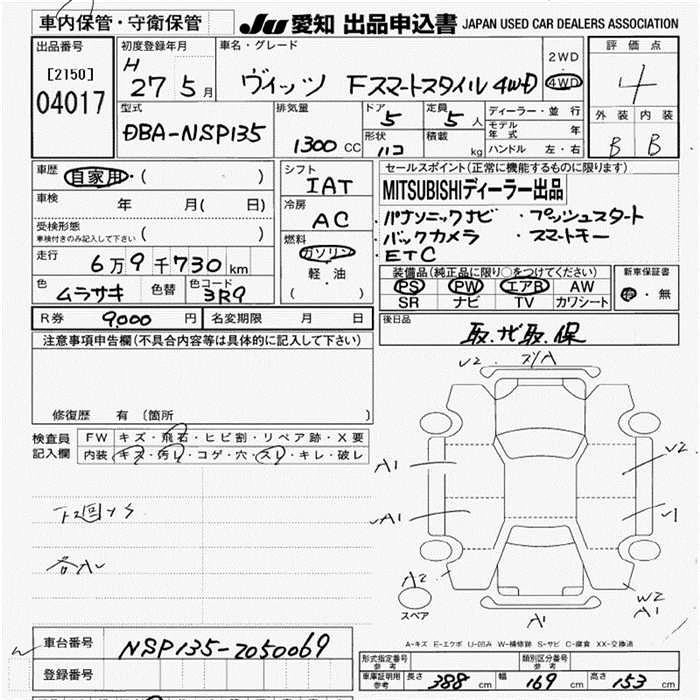 車内保管・守衛保管
JU 愛知 出品申込書 JAPAN USED CAR DEALERS ASSOCIATION
出品番号
[2150]
04017
初度登録年月
H 27 5月
車名・グレード
ヴィッツ Fスマートスタイル 4WD
2WD
4WD
評価点
4
外装 内装
B B
型式
DBA-NSP135
排気量
1300 CC
ドア
5
形状
ハコ
定員
5人
積載
kg
ディーラー・並行
モデル年式 年
ハンドル 左・右
車歴
自家用・( )
車検
年 月( 日)
受検形態
車検付きのみ記入して下さい ( )
走行
6万9千730km
色
ムラサキ
色替
色コード
3R9
シフト
IAT
冷房
AC
燃料
ガソリン
軽・油
( )
セールスポイント(正常に機能するものに限ります)
MITSUBISHIディーラー出品
・パナソニックナビ ・プッシュスタート
・バックカメラ ・スマートキー
・ETC
装備品(純正品に限り〇をつけてください)
PS PW エアB AW
SR ナビ TV カワシート
新車保証書
有・無
R券 9,000円
名変期限 月 日
後日品
取.ナビ取.保
注意事項申告欄(不具合内容等は具体的に記入して下さい)
修復歴 有〔箇所 〕
検査員記入欄
FW キズ・飛石・ヒビ割・リペア跡・X要
内装 キズ・汚レ・コゲ・穴・スレ・キレ・破レ
下回サS
V2
A1
V2
A1
A2
W2
A1
A1
スペア
A-キズ E-エクボ U-凹み W-補修跡 S-サビ C-腐食 XX-交換済
車台番号 NSP135-2050069
登録番号
形式指定番号
参考
類別区分番号
参考
車庫証明用
参考
長さ 388 cm
幅 169 cm
高さ 153 cm